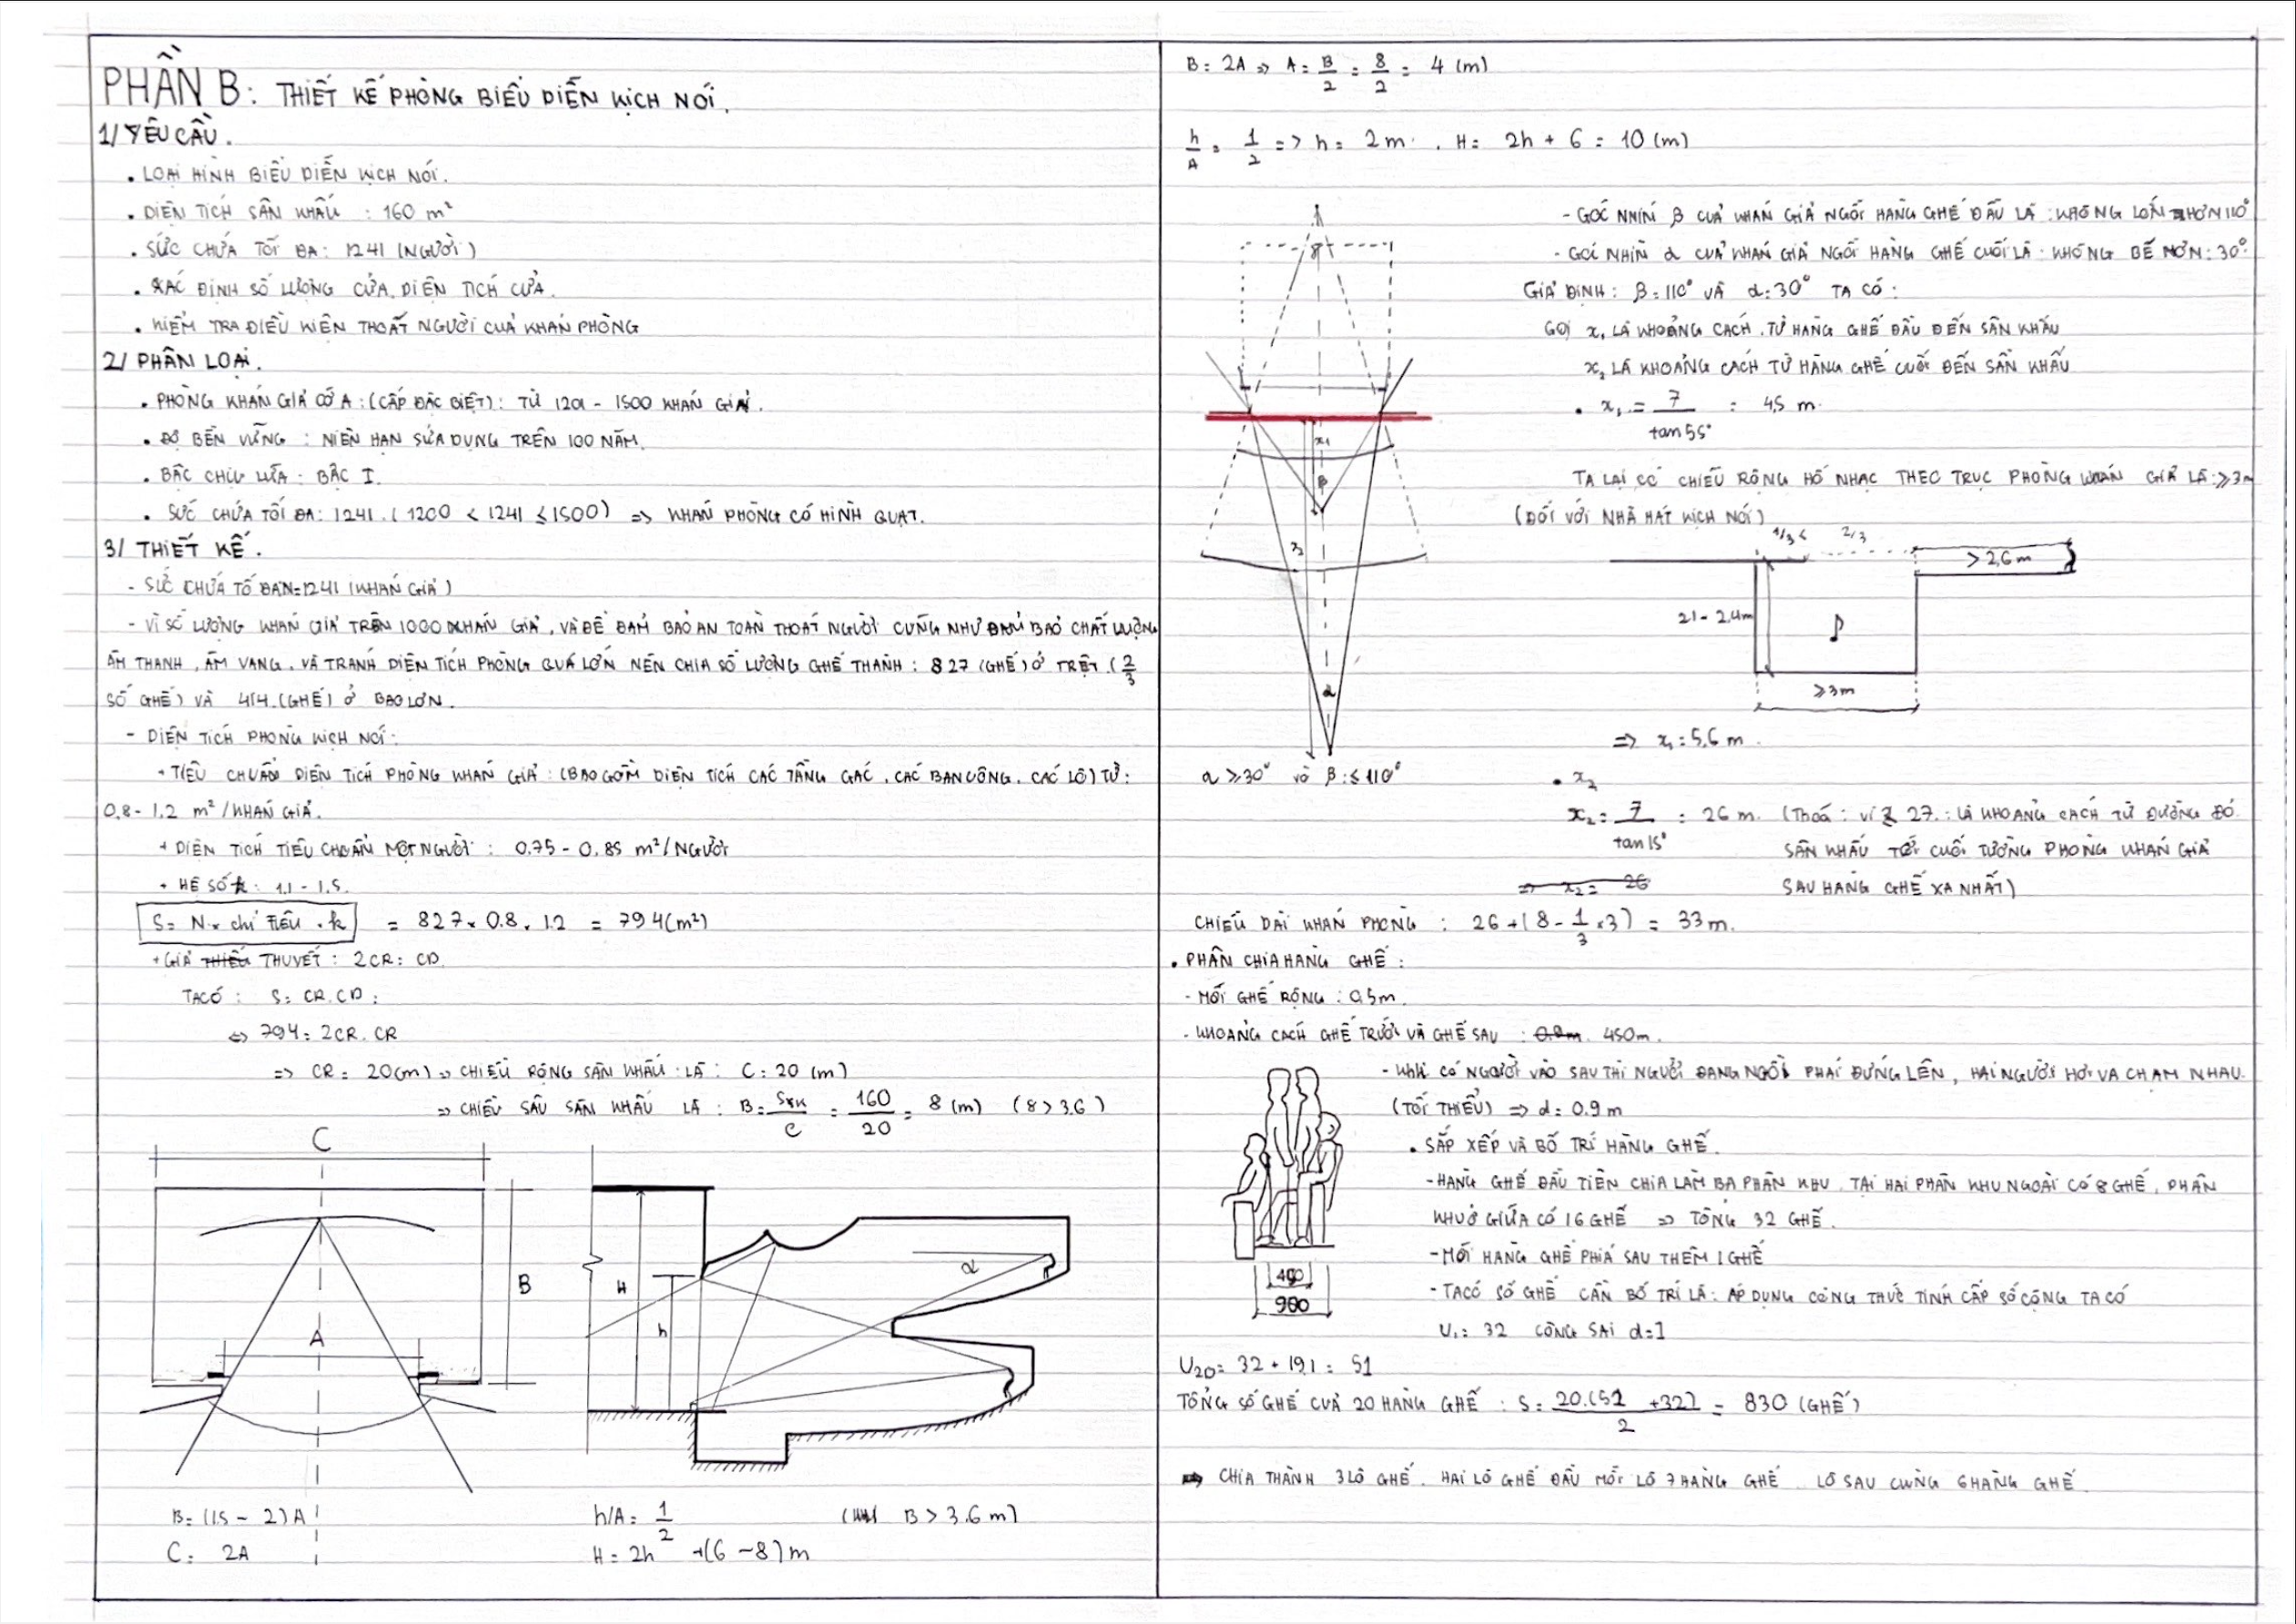 PHẦN B: THIẾT KẾ PHÒNG BIỂU DIỄN KỊCH NÓI.
1/ YÊU CẦU.
• LOẠI HÌNH BIỂU DIỄN KỊCH NÓI.
• DIỆN TÍCH SÂN KHẤU : 160 m²
• SỨC CHỨA TỐI ĐA: 1241 (NGƯỜI)
• XÁC ĐỊNH SỐ LƯỢNG CỬA, DIỆN TÍCH CỬA.
• KIỂM TRA ĐIỀU KIỆN THOÁT NGƯỜI CỦA KHÁN PHÒNG
2/ PHÂN LOẠI.
• PHÒNG KHÁN GIẢ CỠ A: (CẤP ĐẶC BIỆT): TỪ 1201 - 1500 KHÁN GIẢ.
• ĐỘ BỀN VỮNG : NIÊN HẠN SỬA DỤNG TRÊN 100 NĂM.
• BẬC CHỊU LỬA: BẬC I.
• SỨC CHỨA TỐI ĐA: 1241. (1200 < 1241 ≤ 1500) => KHÁN PHÒNG CÓ HÌNH QUẠT.
3/ THIẾT KẾ.
- SỨC CHỨA TỐ ĐA N=1241 (KHÁN GIẢ)
- VÌ SỐ LƯỢNG KHÁN GIẢ TRÊN 1000 KHÁN GIẢ, VÀ ĐỂ ĐẢM BẢO AN TOÀN THOÁT NGƯỜI CŨNG NHƯ ĐẢM BẢO CHẤT LƯỢNG
ÂM THANH, ÂM VANG, VÀ TRÁNH DIỆN TÍCH PHÒNG QUÁ LỚN NÊN CHIA SỐ LƯỢNG GHẾ THÀNH: 827 (GHẾ) Ở TRỆT (2/3
SỐ GHẾ) VÀ 414 (GHẾ) Ở BAO LƠN.
- DIỆN TÍCH PHÒNG KỊCH NÓI:
+ TIÊU CHUẨN DIỆN TÍCH PHÒNG KHÁN GIẢ: (BAO GỒM DIỆN TÍCH CÁC TẦNG GÁC, CÁC BAN CÔNG, CÁC LÔ) TỪ:
0.8 - 1.2 m²/KHÁN GIẢ.
+ DIỆN TÍCH TIÊU CHUẨN MỘT NGƯỜI: 0.75 - 0.85 m²/NGƯỜI
+ HỆ SỐ k: 1.1 - 1.5.
S= N.x chỉ TIÊU . k = 827 x 0.8 . 1.2 = 794 (m²)
+ GIẢ THUYẾT: 2CR = CD.
TA CÓ: S= CR.CD:
<=> 794= 2CR.CR
=> CR= 20(m) => CHIỀU RỘNG SÂN KHẤU LÀ: C= 20 (m)
=> CHIỀU SÂU SÂN KHẤU LÀ: B= SSK/C = 160/20 = 8 (m) (8 > 3.6)
C
B
A
H
h
α
B= (1.5 ~ 2)A
C= 2A
h/A= 1/2
H= 2h +(6 ~ 8)m
(B > 3.6m)
B= 2A => A= B/2 = 8/2 = 4 (m)
h/A = 1/2 => h= 2m. H= 2h + 6 = 10 (m)
- GÓC NHÌN β CỦA KHÁN GIẢ NGỒI HÀNG GHẾ ĐẦU LÀ: KHÔNG LỚN HƠN 110°
- GÓC NHÌN α CỦA KHÁN GIẢ NGỒI HÀNG GHẾ CUỐI LÀ: KHÔNG BÉ HƠN: 30°
GIẢ ĐỊNH: β=110° VÀ α=30° TA CÓ:
GỌI x₁ LÀ KHOẢNG CÁCH TỪ HÀNG GHẾ ĐẦU ĐẾN SÂN KHẤU
x₂ LÀ KHOẢNG CÁCH TỪ HÀNG GHẾ CUỐI ĐẾN SÂN KHẤU
• x₁ = 7/tan55° = 4,5 m.
x₁
β
x₂
α
α ≥ 30° và β ≤ 110°
TA LẠI CÓ CHIỀU RỘNG HỐ NHẠC THEO TRỤC PHÒNG KHÁN GIẢ LÀ: ≥ 3m
(ĐỐI VỚI NHÀ HÁT KỊCH NÓI)
1/3
2/3
> 2,6m
2.1 - 2,4m
♪
≥ 3m
=> x₁= 5,6 m.
• x₂
x₂= 7/tan15° = 26 m. (Thoả: vì ≤ 27: LÀ KHOẢNG CÁCH TỪ ĐƯỜNG ĐỎ
SÂN KHẤU TỚI CUỐI TƯỜNG PHÒNG KHÁN GIẢ
=> x₂= 26
SAU HÀNG GHẾ XA NHẤT)
CHIỀU DÀI KHÁN PHÒNG : 26 + (8 - 1/3 x 3) = 33 m.
• PHÂN CHIA HÀNG GHẾ:
- MỖI GHẾ RỘNG: 0,5m.
- KHOẢNG CÁCH GHẾ TRƯỚC VÀ GHẾ SAU : 0.9m. 450m.
- KHI CÓ NGƯỜI VÀO SAU THÌ NGƯỜI ĐANG NGỒI PHẢI ĐỨNG LÊN, HAI NGƯỜI HƠI VA CHẠM NHAU.
(TỐI THIỂU) => d= 0.9 m
• SẮP XẾP VÀ BỐ TRÍ HÀNG GHẾ.
- HÀNG GHẾ ĐẦU TIÊN CHIA LÀM BA PHÂN KHU. TẠI HAI PHÂN KHU NGOÀI CÓ 8 GHẾ, PHÂN
KHU Ở GIỮA CÓ 16 GHẾ => TỔNG 32 GHẾ.
- MỖI HÀNG GHẾ PHÍA SAU THÊM 1 GHẾ
- TA CÓ SỐ GHẾ CẦN BỐ TRÍ LÀ: ÁP DỤNG CÔNG THỨC TÍNH CẤP SỐ CỘNG TA CÓ
U₁= 32 CÔNG SAI d=1
900
U₂₀= 32 + 19.1 = 51
TỔNG SỐ GHẾ CỦA 20 HÀNG GHẾ : S= 20.(51 + 32)/2 = 830 (GHẾ)
=> CHIA THÀNH 3 LÔ GHẾ. HAI LÔ GHẾ ĐẦU MỖI LÔ 7 HÀNG GHẾ LÔ SAU CÙNG 6 HÀNG GHẾ.